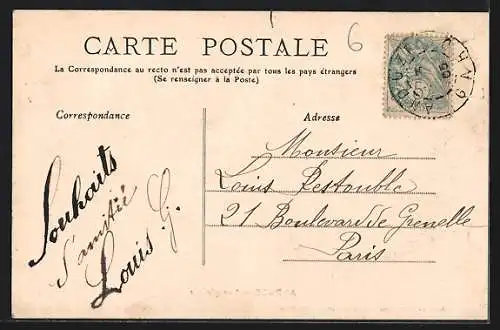 6
CARTE POSTALE
La Correspondance au recto n'est pas acceptée par tous les pays étrangers
(Se renseigner à la Poste)
Correspondance
Adresse
ANDUZE
Souhaits
d'amitié
Louis G.
Monsieur
Louis Pestouble
21 Boulevard de Grenelle
Paris